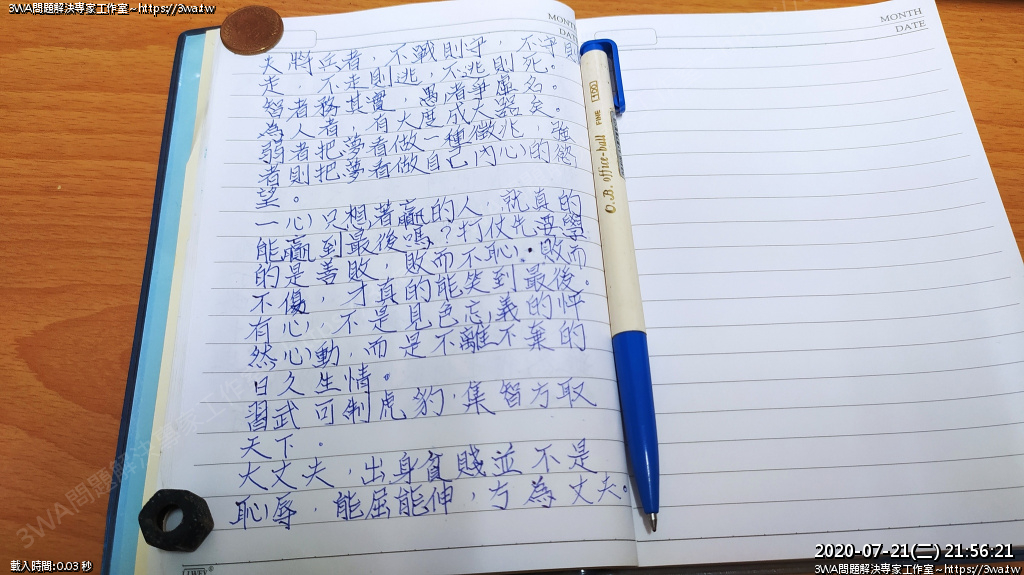 3WA問題解決專家工作室~https://3wa.tw
3WA問題解決專家工作室~https://3wa.tw
MONTH
DATE
MONTH
DATE
夫將兵者，不戰則守，不守則
走，不走則逃，不逃則死。
智者務其實，愚者爭虛名。
為人者，有大度成大器矣。
弱者把夢看做一種徵兆，強
者則把夢看做自己內心的慾
望。
一心只想著贏的人，就真的
能贏到最後嗎？打仗先要學
的是善敗，敗而不恥，敗而
不傷，才真的能笑到最後。
有心，不是見色忘義的怦
然心動，而是不離不棄的
日久生情。
習武可制虎豹，集智方取
天下。
大丈夫，出身貧賤並不是
恥辱，能屈能伸，方為丈夫。
O.B. office-ball FINE 100
3WA問題解決專家工作室
載入時間:0.03 秒
2020-07-21(二) 21:56:21
3WA問題解決專家工作室~https://3wa.tw